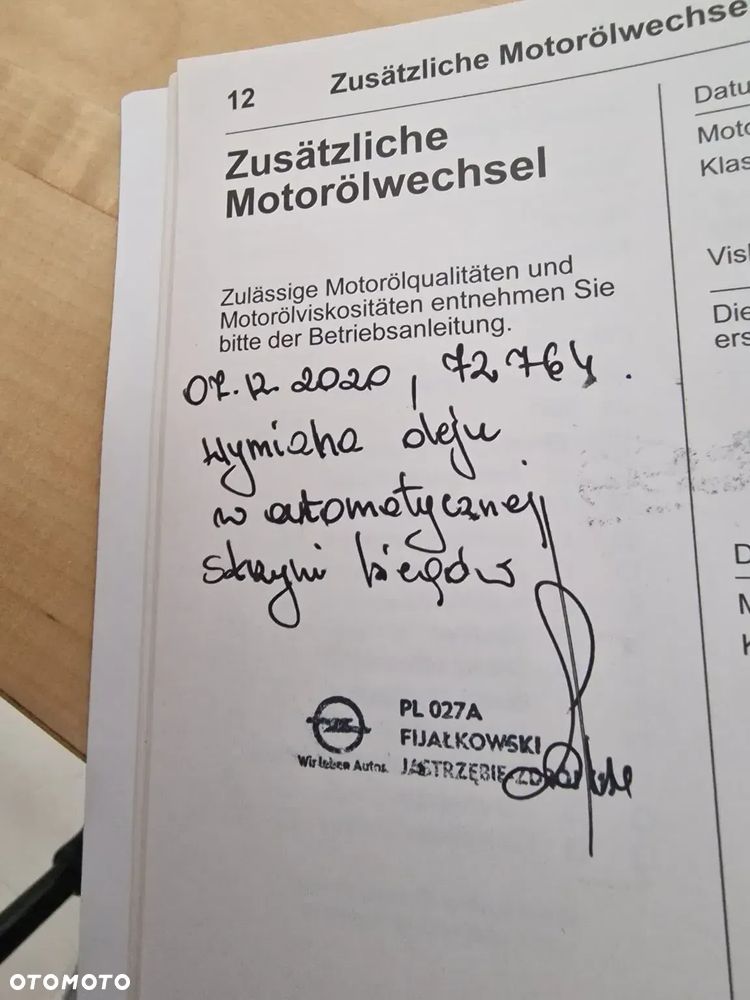 12 Zusätzliche Motorölwechse
Zusätzliche
Motorölwechsel
Zulässige Motorölqualitäten und
Motorölviskositäten entnehmen Sie
bitte der Betriebsanleitung.
07.12.2020, 72764.
Wymiana oleju
w automatycznej
skrzyni biegów
PL 027A
FIJAŁKOWSKI
Wir leben Autos. JASTRZĘBIE-ZDRÓJ
Datu
Moto
Klas
Visk
Die
ers
D
M
K
OTOMOTO